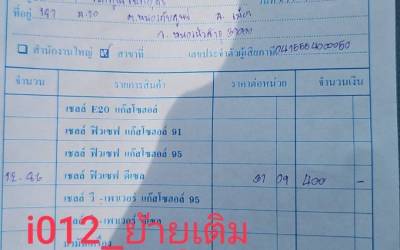 ที่อยู่ 327 ม.10 ต.หนองภัยศูนย์ อ.เมือง
จ.หนองบัวลำภู 39000
สำนักงานใหญ่ สาขาที่ เลขประจำตัวผู้เสียภาษี
จำนวน รายการสินค้า ราคาต่อหน่วย จำนวนเงิน
เชลล์ E20 แก๊สโซฮอล์
เชลล์ ฟิวเซฟ แก๊สโซฮอล์ 91
เชลล์ ฟิวเซฟ แก๊สโซฮอล์ 95
เชลล์ ฟิวเซฟ ดีเซล 31 09 400 -
เชลล์ วี-เพาเวอร์ แก๊สโซฮอล์ 95
-เพาเวอร์ ดีเซล
i012_ย้ายเติม